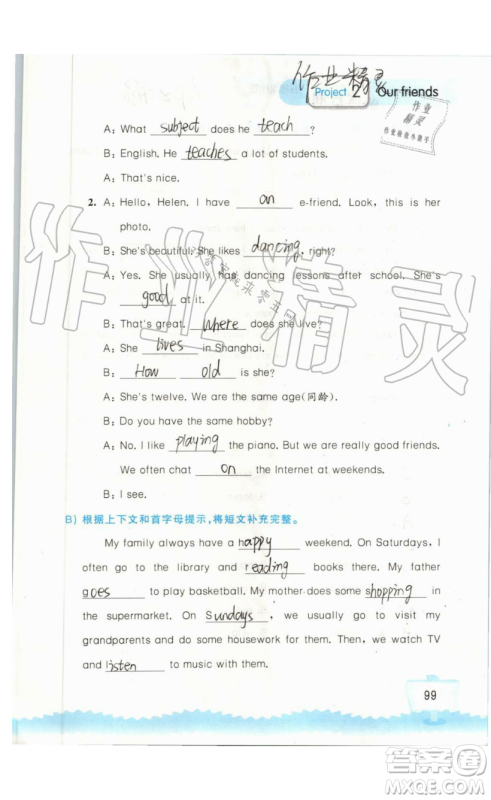 作业精灵
Project 2 Our friends
作业
精灵
作业检查小助手
A: What subject does he teach?
B: English. He teaches a lot of students.
A: That's nice.
2. A: Hello, Helen. I have an e-friend. Look, this is her
photo.
B: She's beautiful. She likes dancing, right?
A: Yes. She usually has dancing lessons after school. She's
good at it.
B: That's great. Where does she live?
A: She lives in Shanghai.
B: How old is she?
A: She's twelve. We are the same age(同龄).
B: Do you have the same hobby?
A: No. I like playing the piano. But we are really good friends.
We often chat on the Internet at weekends.
B: I see.
B) 根据上下文和首字母提示,将短文补充完整。
My family always have a happy weekend. On Saturdays, I
often go to the library and reading books there. My father
goes to play basketball. My mother does some shopping in
the supermarket. On Sundays, we usually go to visit my
grandparents and do some housework for them. Then, we watch TV
and listen to music with them.
99
作业精灵
答案圈
MXQE.COM